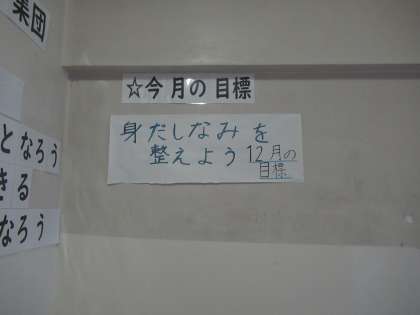 集団
となろう
きる
なろう
☆今月の目標
身だしなみを
整えよう 12月の
目標